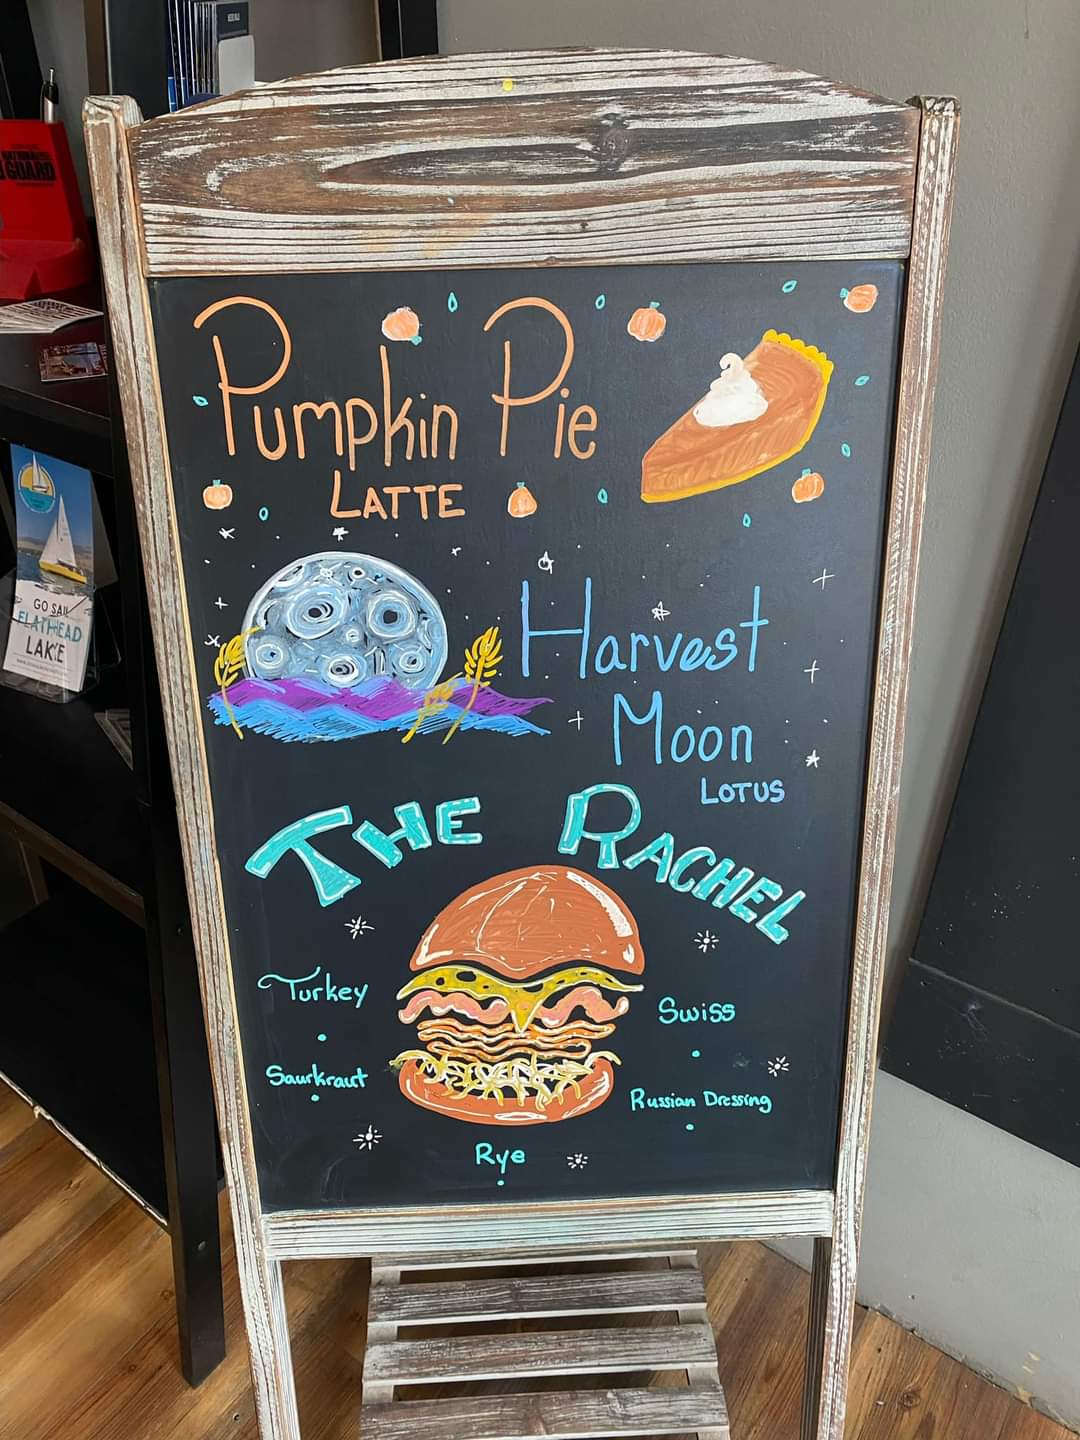 NATIONAL
GUARD
Pumpkin Pie
LATTE
GO SAIL
FLATHEAD
LAKE
Harvest
Moon
LOTUS
THE RACHEL
Turkey
Swiss
Saurkraut
Russian Dressing
Rye